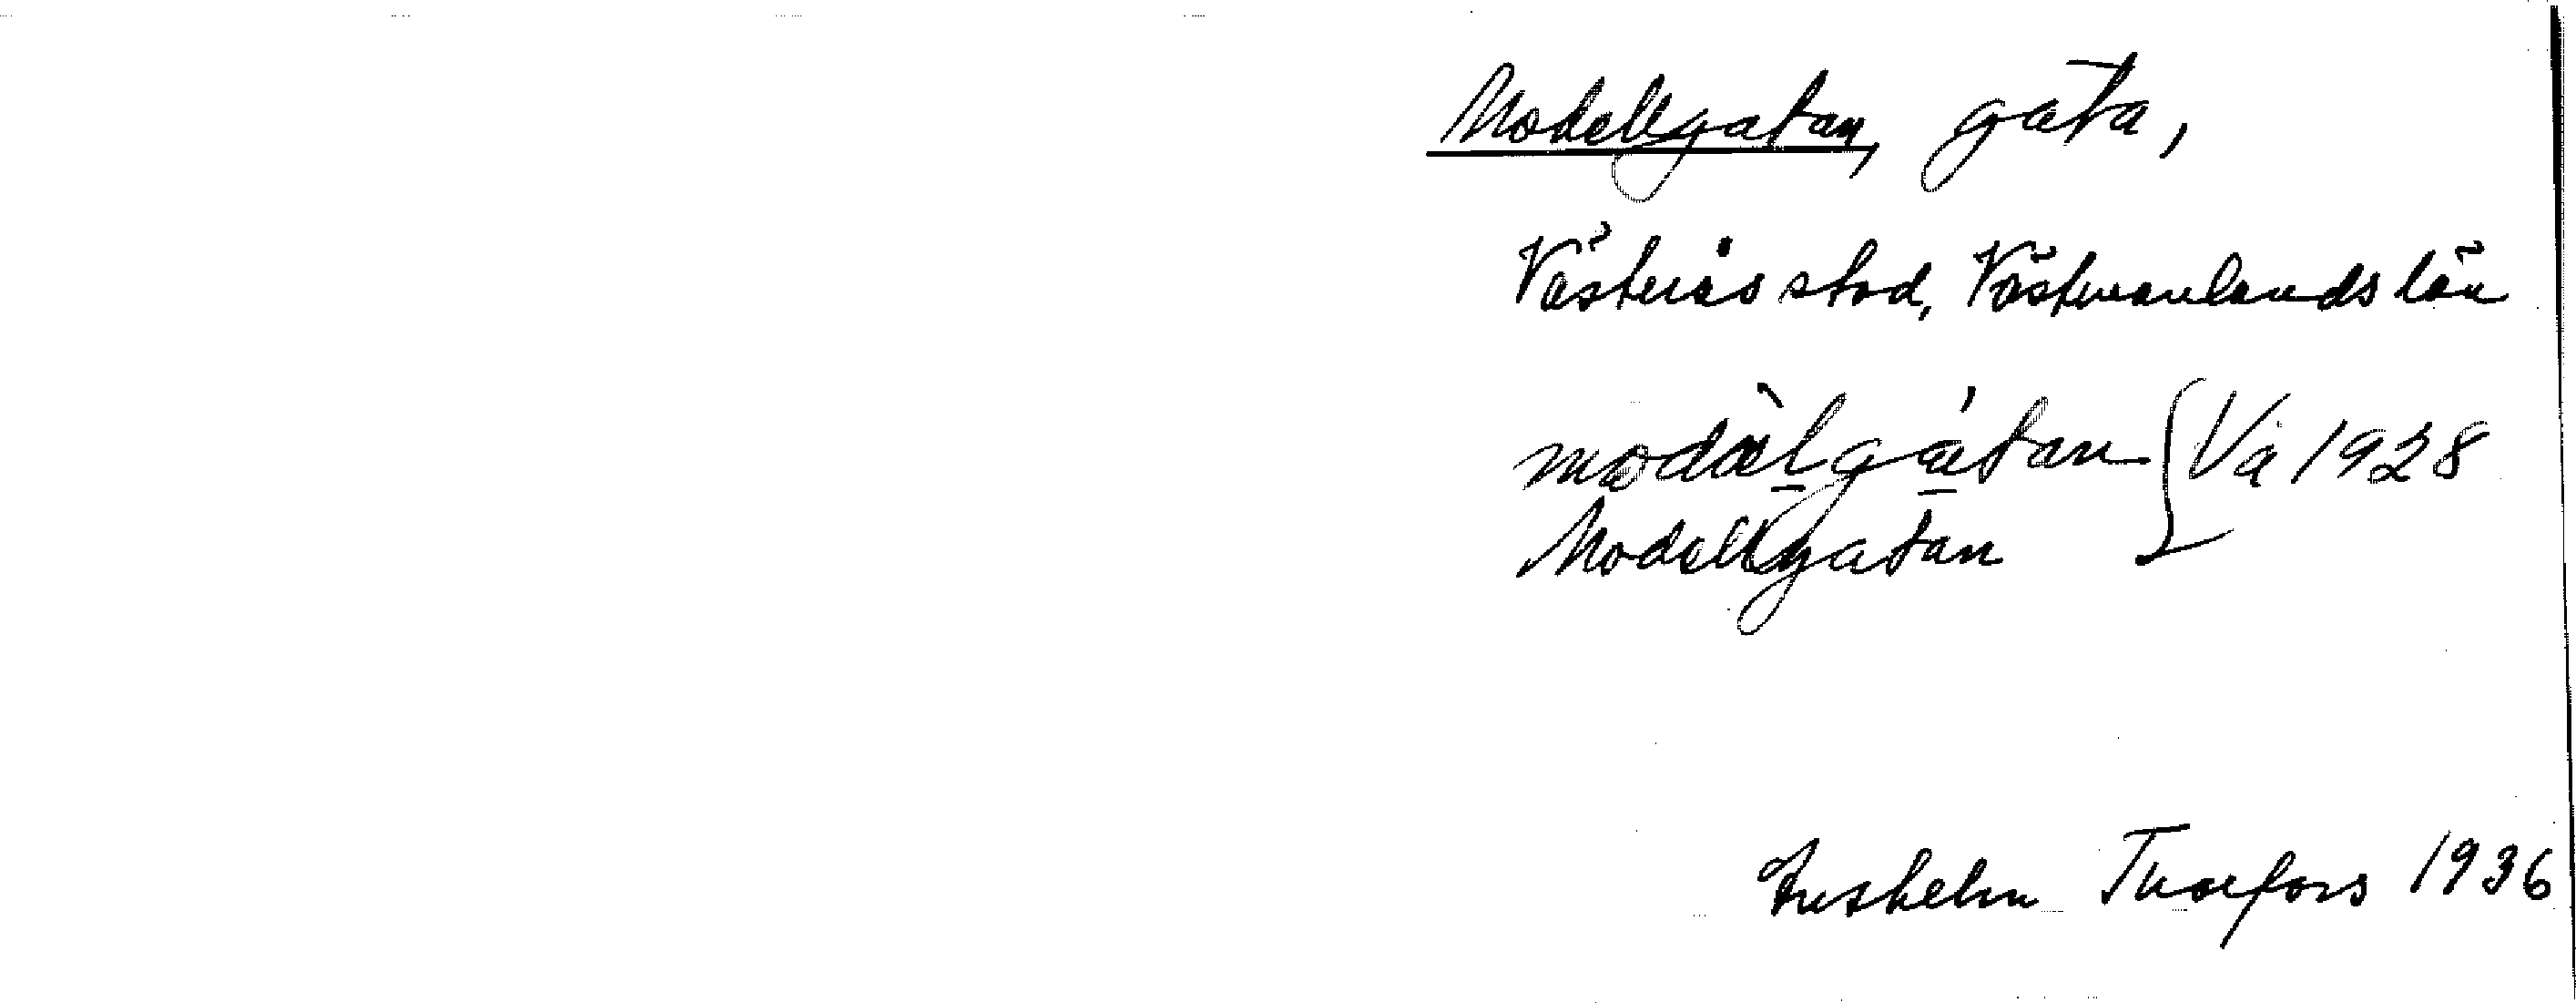 Modellgatan, gata,
Västerås stad, Västmanlands län
modälgatan { Vå 1928
Modellgatan
Thorfors 1936